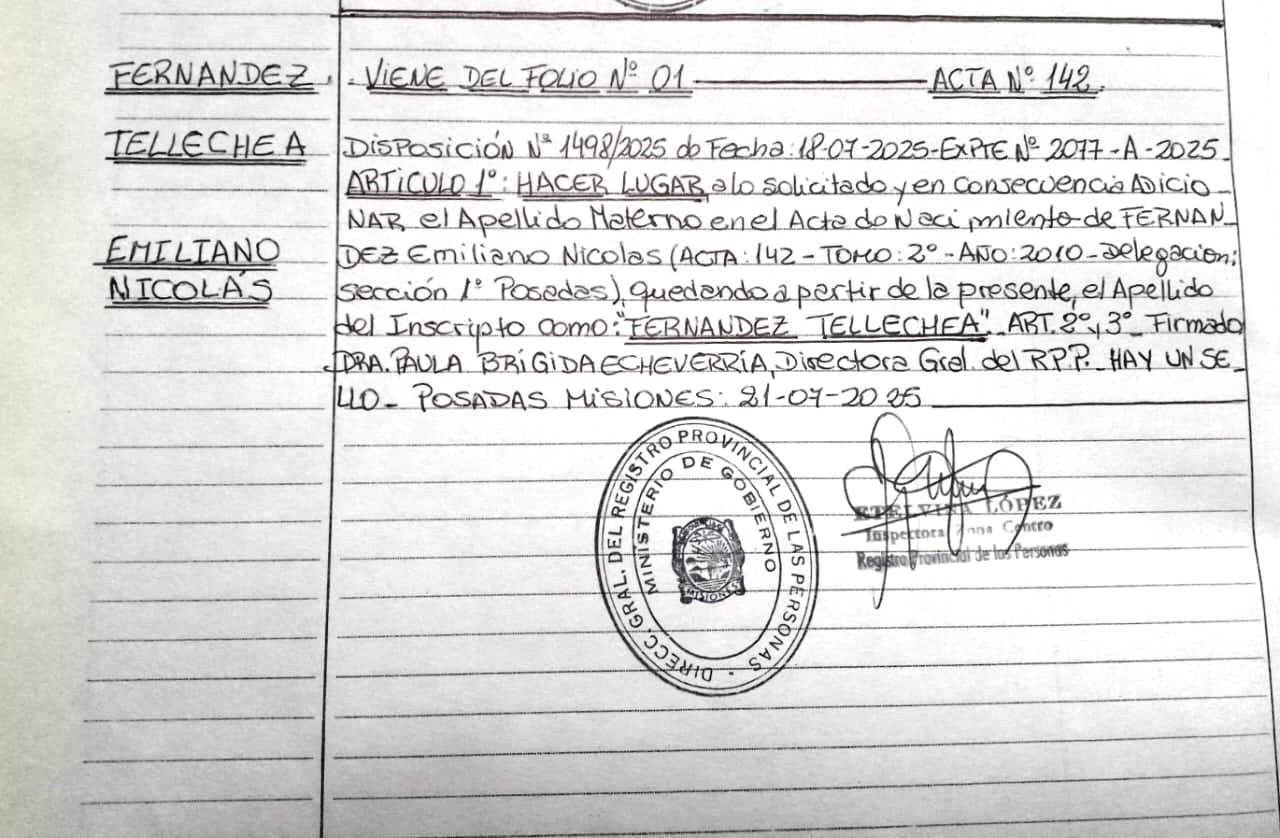 FERNANDEZ. - VIENE DEL FOLIO Nº 01 ACTA Nº 142.
TELLECHEA
EMILIANO
NICOLÁS
DISPOSICIÓN Nº 1498/2025 de Fecha: 18-07-2025-EXPTE Nº 2077-A-2025
ARTICULO 1º: HACER LUGAR, a lo solicitado y en consecuencia ADICIO-
NAR el Apellido Materno en el Acta de Nacimiento de FERNAN-
DEZ Emiliano Nicolas (ACTA: 142 - TOMO: 2º - AÑO: 2010 - Delegacion:
sección 1º Posadas), quedando a partir de la presente, el Apellido
del Inscripto como: "FERNANDEZ TELLECHEA". ART. 2º y 3º Firmado
DRA. PAULA BRÍGIDA ECHEVERRÍA, Directora Gral. del R.P.P. HAY UN SE-
LLO - POSADAS MISIONES: 21-07-2025
DIRECC. GRAL. DEL REGISTRO PROVINCIAL DE LAS PERSONAS -
MINISTERIO DE GOBIERNO
MISIONES
ETELVINA LÓPEZ
Inspectora Zona Centro
Registro Provincial de las Personas